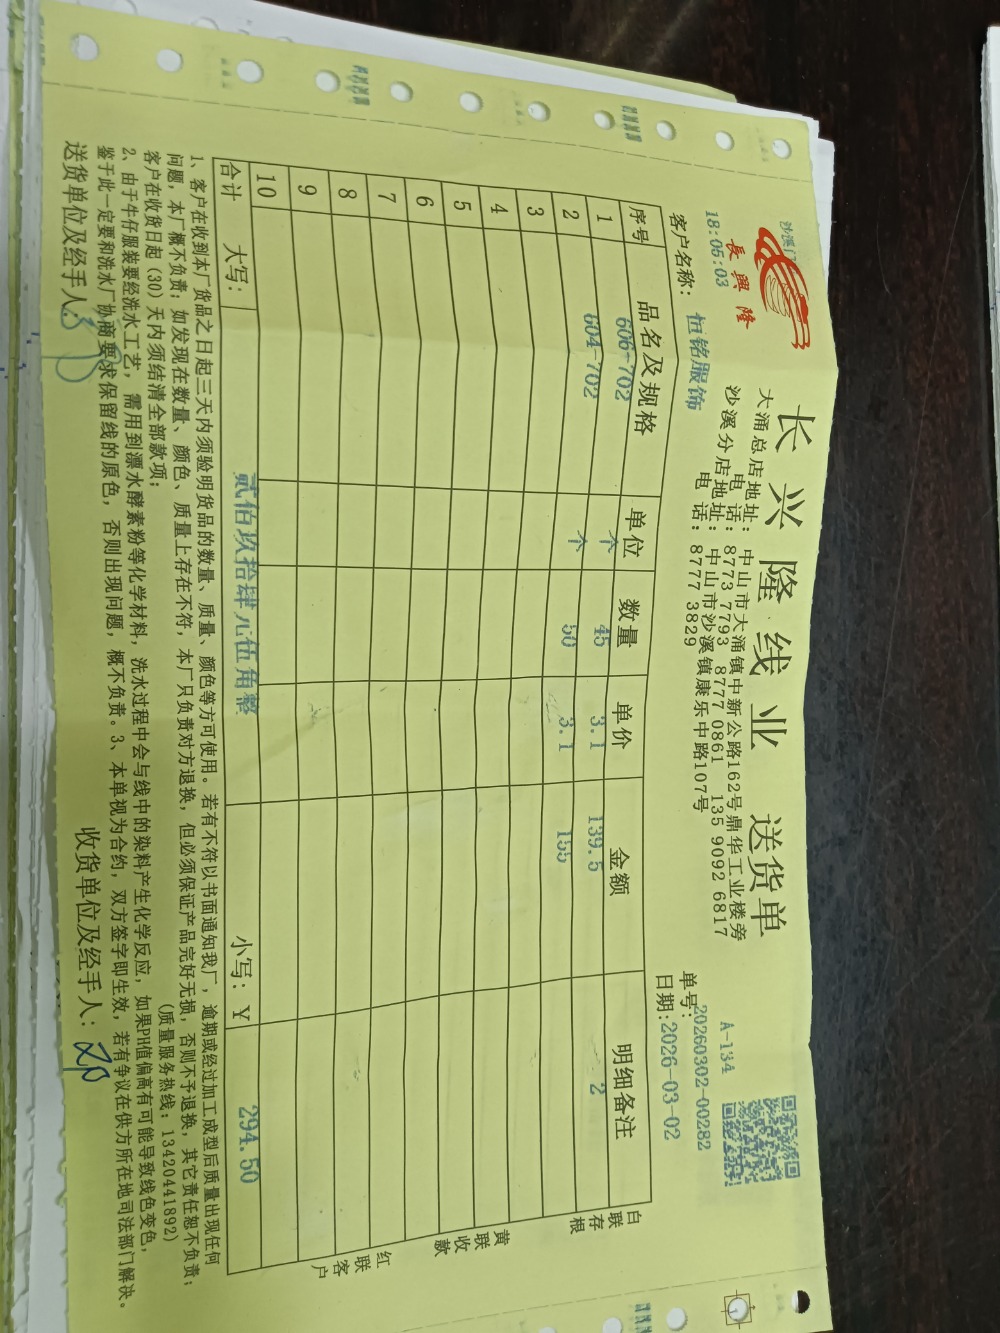 沙溪门
長興隆
18:05:03
长兴隆线业 送货单
大涌总店地址: 中山市大涌镇中新公路162号鼎华工业楼旁
电 话: 8773 7793 8777 0861 135 9092 6817
沙溪分店地址: 中山市沙溪镇康乐中路107号
电 话: 8777 3829
A-134
客户名称: 恒铭服饰
单号: 20260302-00282
日期: 2026-03-02
序号 品名及规格 单位 数量 单价 金额 明细备注
1 606-702 个 45 3.1 139.5 2
2 604-702 个 50 3.1 155
3
4
5
6
7
8
9
10
合计 大写: 贰佰玖拾肆元伍角整 小写: ¥ 294.50
白联存根
黄联收款
红联客户
1、客户在收到本厂货品之日起三天内须验明货品的数量、质量、颜色等方可使用。若有不符以书面通知我厂，逾期或经过加工成型后质量出现任何
问题，本厂概不负责；如发现在数量、颜色、质量上存在不符，本厂只负责对方退换，但必须保证产品完好无损，否则不予退换，其它责任恕不负责；
客户在收货日起（30）天内须结清全部款项； (质量服务热线：13420441892)
2、由于牛仔服装要经洗水工艺，需用到漂水酵素粉等化学材料，洗水过程中会与线中的染料产生化学反应，如果PH值偏高有可能导致线色变色，
鉴于此一定要和洗水厂协商要求保留线的原色，否则出现问题，概不负责。3、本单视为合约，双方签字即生效，若有争议在供方所在地司法部门解决。
送货单位及经手人: 收货单位及经手人: